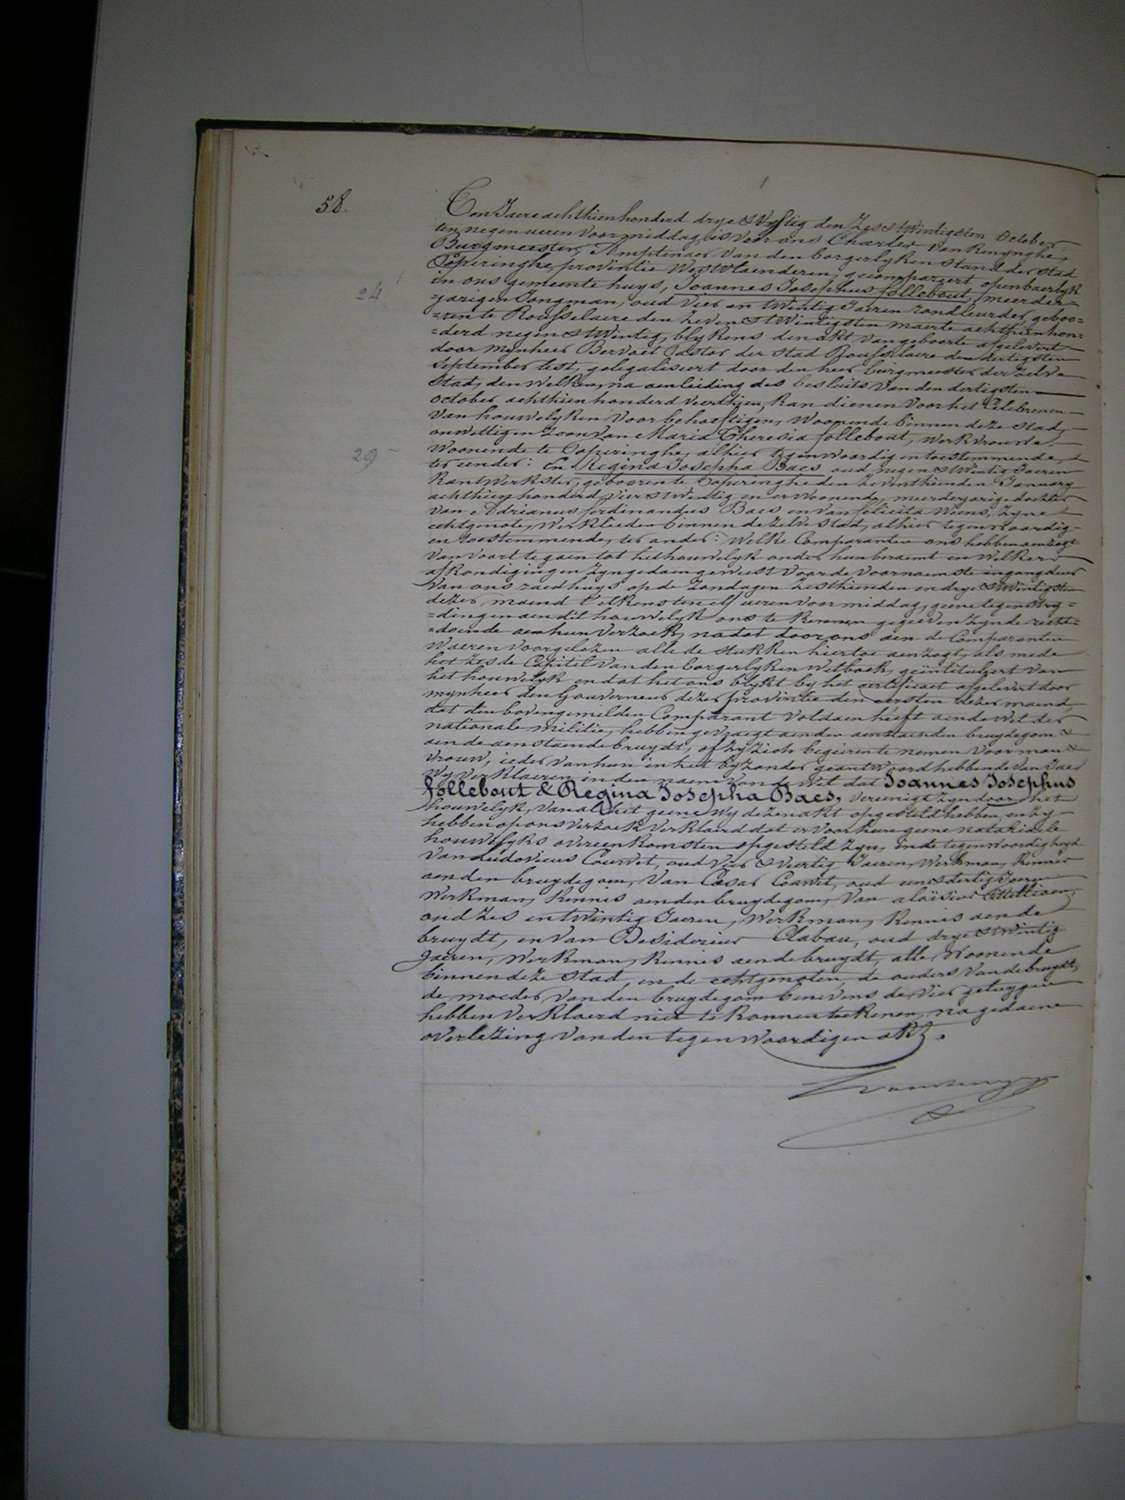 58.
Ten Jaere achthien honderd drye & Vyftig den Zes & Twintigsten October
ten negen ueren Voormiddag, is Voor ons Charles Van Renynghe,
Burgmeester, Amptenaer Van den borgerlyken Stand der Stad
Poperinghe, provintie Westvlaenderen, gecompareert openbaerlyk
in ons gemeente huys, Joannes Josephus follebout, meerder-
24
=jarigen Jongman, oud Vier en twintig Jaeren zondleurder, geboo=
=ren te Rousselaere den Zeven & Twintigsten maerte achthien hon=
=derd negen & Twintig, blykens den akt van geboorte afgelevert
door Mynheer Bervoet Pastor der Stad Rousselaere den dertigsten
September lest, gelegaliseert door den heer burgmeester der Zelve
Stad, den Welken, na aenleiding des besluits Van den dertigsten
October achthien honderd Veerthien, kan dienen Voor het Celebreren
Van houwelyken Voor behoeftigen, Woonende binnen deze Stad,
onwettigen Zoon Van Maria Theresia follebout, Werkvrouwe,
Woonende te Poperinghe, alhier tegenwoordig en toestemmende,
29
ter eender: En Regina Josepha Baes oud negen & Twintig Jaeren
Kantwerkster, gebooren te Poperinghe den Zeventhienden January
achthien honderd Vier & Twintig en er Woonende, meerderjarige dochter
Van Adrianus ferdinandus Baes en Van felicita Wiens, Zyne
echtgenote, Werklieden binnen de Zelve Stad, alhier tegenwoordig
en toestemmende, ter ander: Welke Comparanten ons hebben aenzogt
Van Voort te gaen tot het houwelyk onder hun beraemt en Welkers
afkondigingen zyn gedaen geweest Voor de Voornaemste ingang deur
Van ons raedhuys op de Zondagen Zesthienden en drye & Twintigsten
dezer maend t'elkens ten elf ueren Voormiddag, geene tegenstry=
=dingen aen dit houwelyk ons te kennen gegeven zynde recht=
=doende aen hun Verzoek, nadat door ons aen de Comparanten
Waeren Voorgelezen alle de stukken hiertoe aenzogt, als mede
het Zesde Capitel Van den borgerlyken Wetboek, geïntituleert Van
het houwelyk en dat het ons blykt by het certificaet afgelevert door
mynheer den Gouverneur dezer provintie den eersten dezer maend,
dat den bovengemelden Comparant Voldaen heeft aen de Wet der
nationale militie, hebben gevraegt aen den aenstaenden bruydegom &
aen de aenstaende bruydt, of zy zich begeeren te nemen Voor man &
Vrouw, ieder Van hun en het byzonder geantwoord hebbende Van Jae
Wy Verklaeren in den naem Van de Wet dat Joannes Josephus
follebout & Regina Josepha Baes, Vereenigt zyn door het
houwelyk, Van al het geene Wy dezen akt opgesteld hebben, en zy
hebben op ons Verzoek Verklaerd dat er Voor hun geene notariele
houwelyks overeenkomsten opgesteld zyn, in de tegenwoordigheyd
Van Ludovicus Couwet, oud Vier & Veertig Jaeren, Werkman, Kennis
aen den bruydegom, Van Cesar Couwet, oud een & dertig Jaeren
Werkman, Kennis aen den bruydegom, Van aloïsius
oud Zes en twintig Jaeren, Werkman, Kennis aen de
bruydt, en Van Desiderius Clabau, oud drye & Twintig
Jaeren, Werkman, Kennis aen de bruydt, alle Woonende
binnen deze Stad, en de echtgenoten, de ouders Van de bruydt,
de moeder Van den bruydegom benevens de Vier getuygen
hebben Verklaerd niet te konnen teekenen, na gedaene
overlezing Van den tegenwoordigen akt.